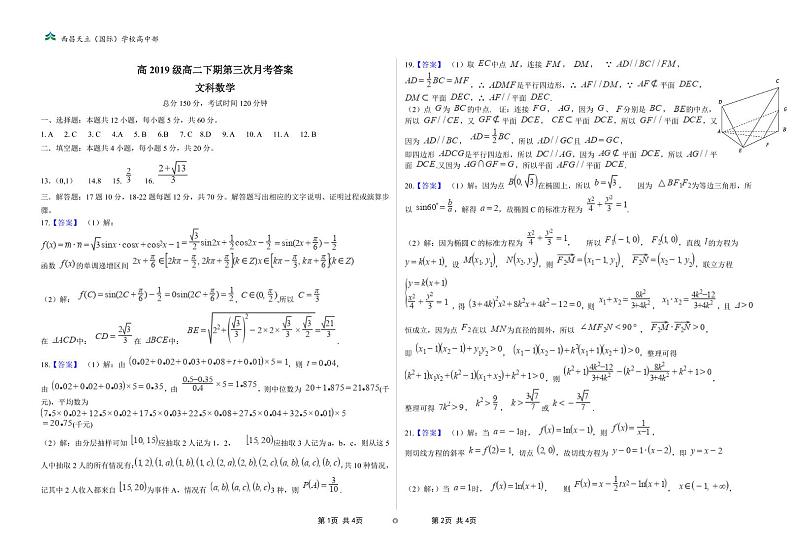 西昌天立（国际）学校高中部
高 2019 级高二下期第三次月考答案
文科数学
总分 150 分，考试时间 120 分钟
一、选择题：本题共 12 小题，每小题 5 分，共 60 分。
1. A 2. C 3. C 4. A 5. B 6. B 7. C 8.D 9. A 10. A 11. A 12. B
二、填空题：本题共 4 小题，每小题 5 分，共 20 分。
13．(0,1) 14.8 15. 2/3 16. (2+√13)/3
三．解答题：17 题 10 分，18-22 题每题 12 分，共 70 分。解答题写出相应的文字说明、证明过程或演算步
骤。
17.【答案】（1）解：
f(x)=m·n=√3sinx·cosx+cos²x−1=√3/2 sin2x+1/2 cos2x−1/2=sin(2x+π/6)−1/2
函数 f(x)的单调递增区间 2x+π/6∈[2kπ−π/2, 2kπ+π/2](k∈Z)x∈[kπ−π/3, kπ+π/6](k∈Z)
（2）解：f(C)=sin(2C+π/6)−1/2=0sin(2C+π/6)=1/2, C∈(0,π/2)所以 C=π/3
在 △ACD中：CD=2√3/3 在 △BCE中：BE=√(2²+(√3/3)²−2×2×√3/3×√3/2)=√21/3
18.【答案】（1）解：由 (0.02+0.02+0.03+0.08+t+0.01)×5=1，则 t=0.04，
由 (0.02+0.02+0.03)×5=0.35，由 (0.5−0.35)/0.4×5=1.875，则中位数为 20+1.875=21.875(千
元)，平均数为
(7.5×0.02+12.5×0.02+17.5×0.03+22.5×0.08+27.5×0.04+32.5×0.01)×5
=20.75(千元)
（2）解：由分层抽样可知 [10, 15)应抽取 2 人记为 1，2， [15, 20)应抽取 3 人记为 a，b，c，则从这 5
人中抽取 2 人的所有情况有:(1, 2),(1, a),(1, b),(1, c),(2, a),(2, b),(2, c),(a, b),(a, c),(b, c),共 10 种情况，
记其中 2 人收入都来自 [15, 20)为事件 A，情况有 (a, b),(a, c),(b, c) 3 种，则 P(A)=3/10．
第 1页 共 4页
19.【答案】（1）取 EC中点 M，连接 FM， DM， ∵ AD//BC//FM，
AD=1/2BC=MF，∴ ADMF是平行四边形，∴ AF//DM，∵ AF⊄平面 DEC，
DM⊂平面 DEC，∴ AF//平面 DEC．
（2）点 G为 BC的中点．证：连接 FG， AG，因为 G、F分别是 BC， BE的中点，
所以 GF//CE，又 GF⊄平面 DCE， CE⊂平面 DCE，所以 GF//平面 DCE，又
因为 AD//BC， AD=1/2BC，所以 AD//GC且 AD=GC，
即四边形 ADCG是平行四边形，所以 DC//AG，因为 AG⊄平面 DCE，所以 AG//平
面 DCE又因为 AG∩GF=G，所以平面 AFG//平面 DCE．
A
B
C
D
E
F
20.【答案】（1）解：因为点 B(0, √3)在椭圆上，所以 b=√3， 因为 △BF1F2为等边三角形，所
以 sin60°=b/a，解得 a=2，故椭圆 C 的标准方程为 x²/4+y²/3=1．
（2）解：因为椭圆 C 的标准方程为 x²/4+y²/3=1， 所以 F1(−1, 0)，F2(1, 0)，直线 l的方程为
y=k(x+1)，设 M(x1, y1)， N(x2, y2)，则 F2M=(x1−1, y1)， F2N=(x2−1, y2)，联立方程
{y=k(x+1)
x²/4+y²/3=1，得 (3+4k²)x²+8k²x+4k²−12=0，则 x1+x2=−8k²/(3+4k²)， x1·x2=(4k²−12)/(3+4k²)，且 Δ>0
恒成立，因为点 F2在以 MN为直径的圆外，所以 ∠MF2N<90°， F2M·F2N>0，
即 (x1−1)(x2−1)+y1y2>0， (x1−1)(x2−1)+k²(x1+1)(x2+1)>0，整理可得
(k²+1)x1x2+(k²−1)(x1+x2)+k²+1>0，则 (k²+1)(4k²−12)/(3+4k²)−(k²−1)8k²/(3+4k²)+k²+1>0，
整理可得 7k²>9， k²>9/7， k>3√7/7 或 k<−3√7/7．
21.【答案】（1）解：当 a=−1时， f(x)=ln(x−1)，则 f′(x)=1/(x−1)，
则切线方程的斜率 k=f′(2)=1，切点 (2, 0)，故切线方程为 y−0=1·(x−2)，即 y=x−2
（2）解：）当 a=1时， f(x)=ln(x+1)， 则 F(x)=x−1/2tx²−ln(x+1)， x∈(−1, +∞)，
第 2页 共 4页